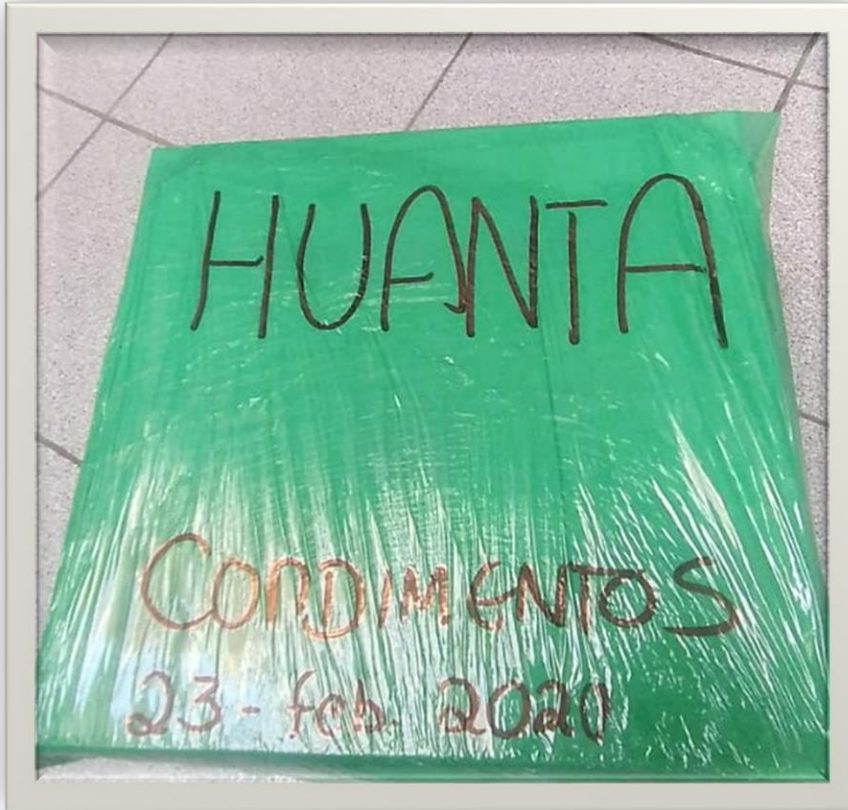 HUANTA
CONDIMENTOS
23-feb. 2020